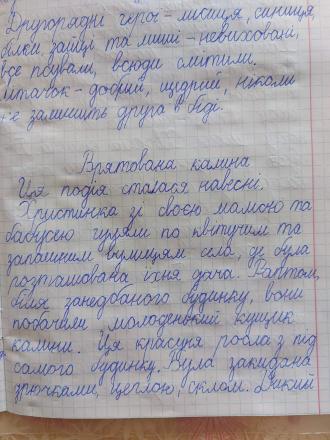 Другорядні герої - лисиця, синиця,
білки зайці та миші - невиховані,
все псували, всюди смітили.
Їжачок - добрий, щедрий, ніколи
не залишить друга в біді.
Врятована калина
Ця подія сталася навесні.
Христинка зі своєю мамою та
бабусею гуляли по квітучим та
запашним вулицям села, де була
розташована їхня дача. Раптом,
біля занедбаного будинку, вони
побачили молоденький кущик
калини. Ця красуня росла з під
самого будинку. Була закидана
гілочками, цеглою, склом. Дикий